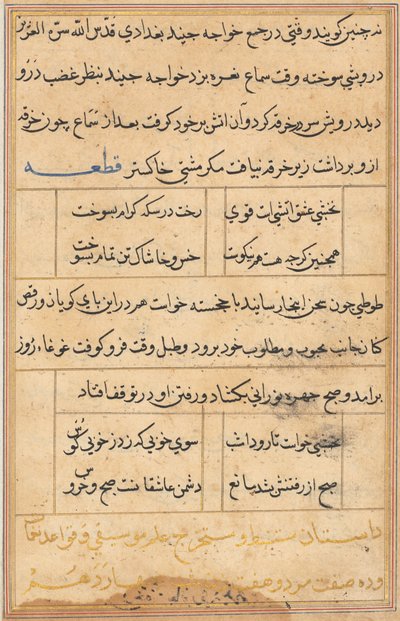 نه چنین کویند وقتی در جمع خواجه جنید بغدادی قدّس الله سرّه العزیز
درویشی سوخته وقت سماع نعره بزد خواجه جنید بنظر غضب درو
دید درویش سر در خرقه کرد و آن اتش بر خود کرفت بعد از سماع چون خرقه
ازو برداشت زیر خرقه نیافت مکر مشتی خاکستر قطعه
نخشبی عشق آتشی است قوی رخت در سکه کرام بسوخت
همچنین کرچه هست هم نیکوست خس و خاشاک تن تمام بسوخت
طوطی چون سخن اینجا رسانید با خجسته خواست هم در این پای کوبان و رقص
کنان جانب محبوب و مطلوب خود برود و طبل وقت فرو کوفت غوغاء روز
برامد و صبح چهره نورانی بکشاد و رفتن او در توقف افتاد
نخشبی خواست تا رود امشب سوی خوبی که زد ز خوبی کوس
صبح از رفتنش بشد مانع دشمن عاشقانست صبح و خروس
داستان مستنبط و مستخرج علم موسیقی و قواعد نغمات
و ده صفت مرد و هفت چهاردهم